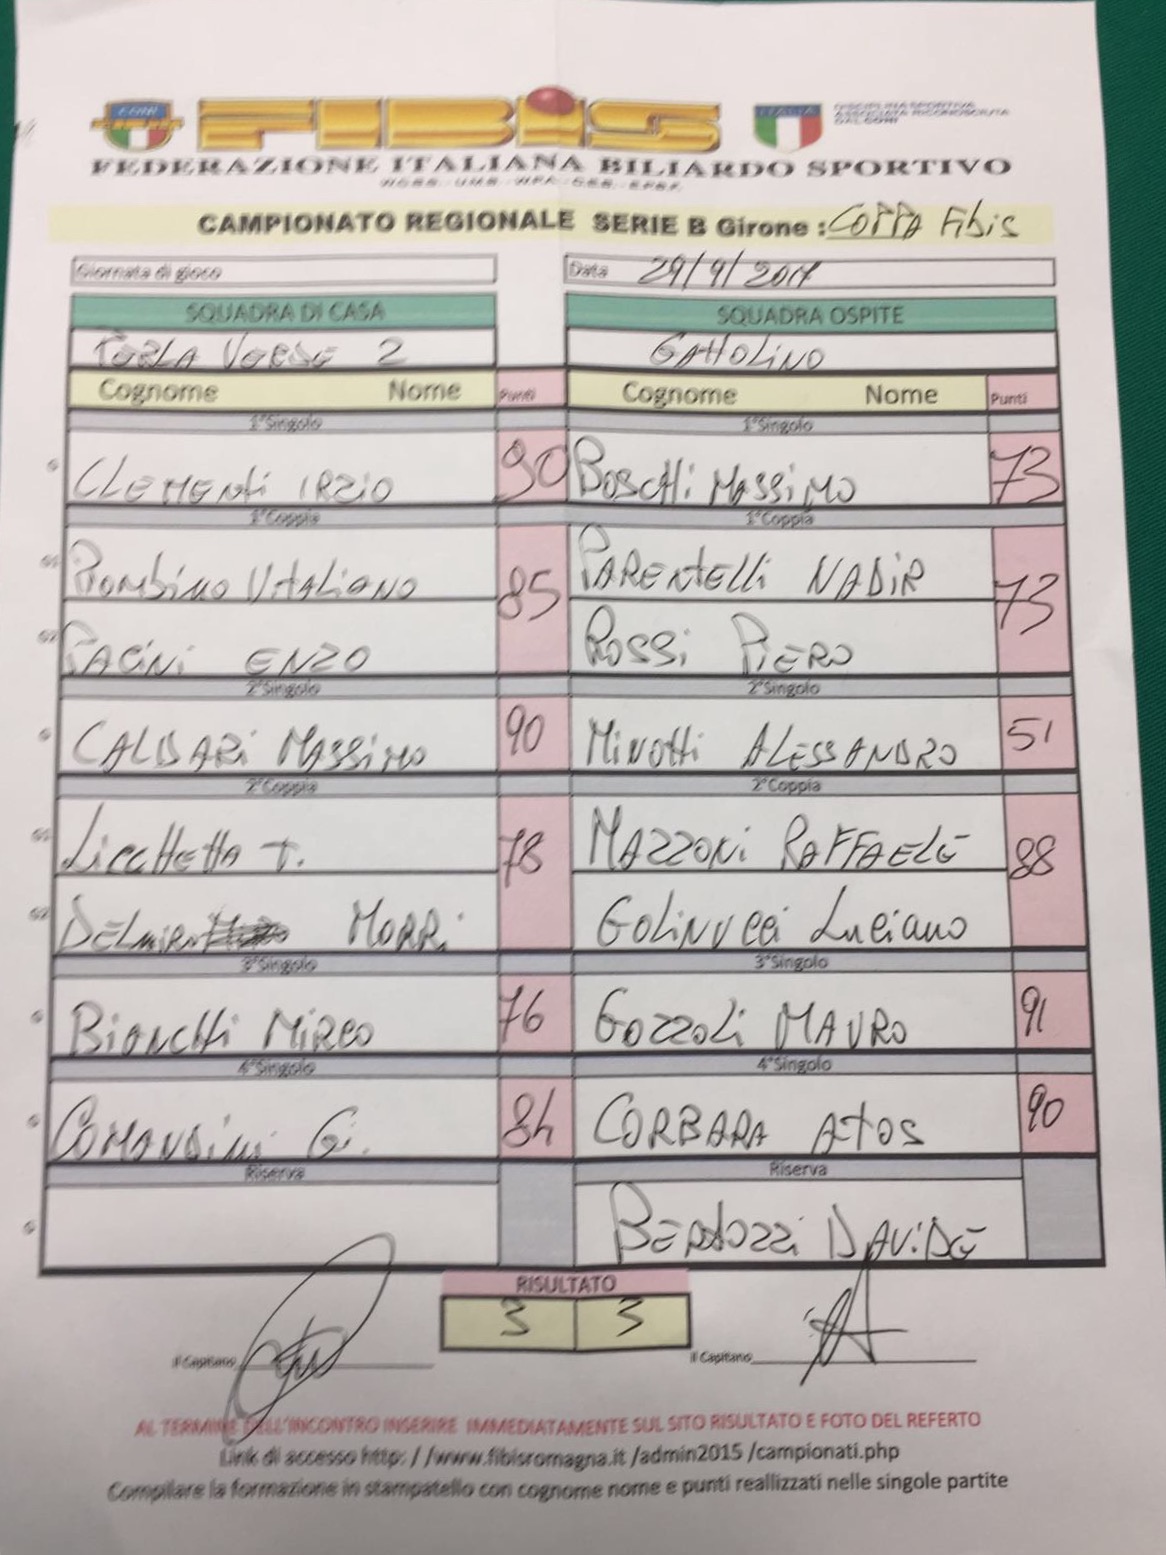 FIBiS
FEDERAZIONE ITALIANA BILIARDO SPORTIVO
CAMPIONATO REGIONALE SERIE B Girone : COPPA FibiS
Giornata di gioco Data 29/9/2017
SQUADRA DI CASA SQUADRA OSPITE
PERLA VERDE 2 GATTOLINO
Cognome Nome Punti Cognome Nome Punti
1°Singolo 1°Singolo
CLEMENTI IRZIO 90 BOSCHI MASSIMO 73
1°Coppia 1°Coppia
PIOMBINO VITALIANO 85 PARENTELLI NADIR 73
PACINI ENZO ROSSI PIERO
2°Singolo 2°Singolo
CALDARI MASSIMO 90 MINOTTI ALESSANDRO 51
2°Coppia 2°Coppia
LICCHETTA T. 78 MAZZONI RAFFAELE 88
MORRI GOLINUCCI Luciano
3°Singolo 3°Singolo
BIANCHI MIRCO 76 GOZZOLI MAURO 91
4°Singolo 4°Singolo
COMANDINI Gi. 84 CORBARA ATOS 90
Riserva Riserva
BERTOZZI DAVIDE
RISULTATO
3 3
Il Capitano Il Capitano
AL TERMINE DELL'INCONTRO INSERIRE IMMEDIATAMENTE SUL SITO RISULTATO E FOTO DEL REFERTO
Link di accesso http: / /www.fibisromagna.it /admin2015 /campionati.php
Compilare la formazione in stampatello con cognome nome e punti reallizzati nelle singole partite